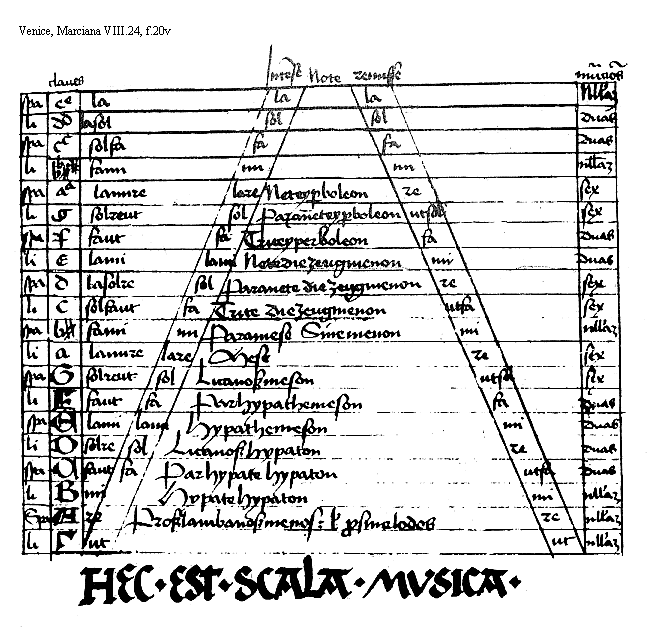 Venice, Marciana VIII.24, f.20v
claues Note
spa ce la la la
li dd lasol sol sol duas
spa cc solfa fa fa duas
li fami mi mi
spa aa lamire lare Neteyperboleon re sex
li g solreut sol Paraneteyperboleon utsol sex
spa f faut fa Triteyperboleon fa duas
li e lami lami Netediezeugmenon mi duas
spa d lasolre sol Paranete diezeugmenon re sex
li c solfaut fa Trite diezeugmenon utfa sex
spa fami mi Paramese Sinemenon mi
li a lamire lare Mese re sex
spa G solreut sol Licanosmeson utsol sex
li F faut fa Parhypathemeson fa duas
spa E lami lami Hypathemeson mi duas
li D solre sol Licanoshypaton re duas
spa C faut fa Parhypate hypaton utfa duas
li B mi Hypate hypaton mi
A re Proslambanosimenos: re
li Γ ut ut
HEC·EST·SCALA·MVSICA·